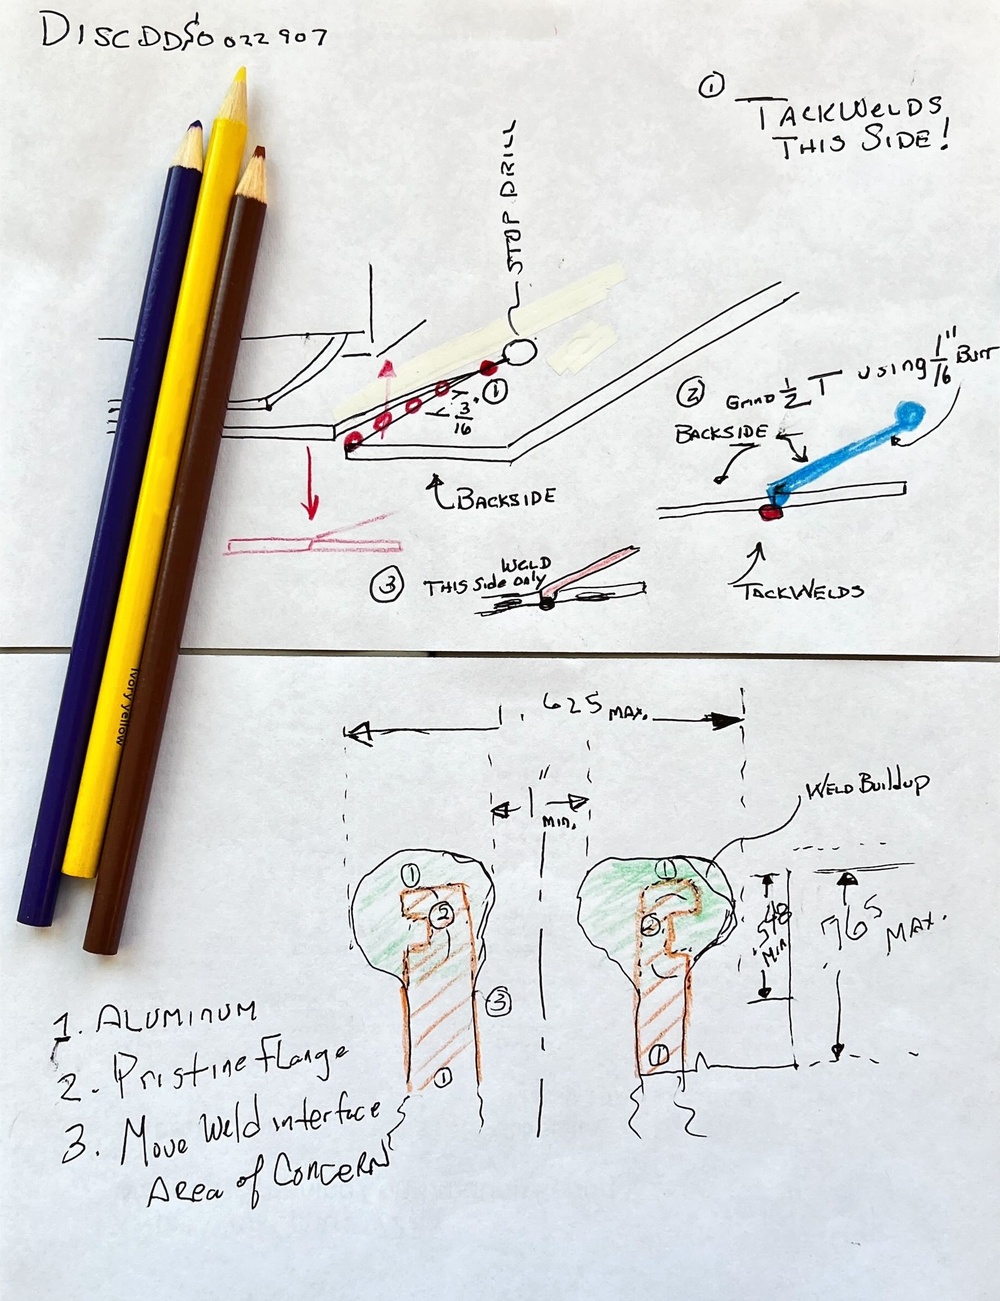 DISCDDS0022907
①
TACKWELDS
THIS SIDE!
STOP DRILL
①
3"
16
②
GRIND 1/2 T using 1/16" Burr
BACKSIDE
BACKSIDE
③
WELD
THIS Side only
TACKWELDS
Ivory yellow
1.625 MAX.
1"
MIN.
WELD Buildup
①
②
③
①
①
②
①
.548
MIN
.765 MAX.
1. ALUMINUM
2. Pristine Flange
3. Move Weld interface
Area of Concern